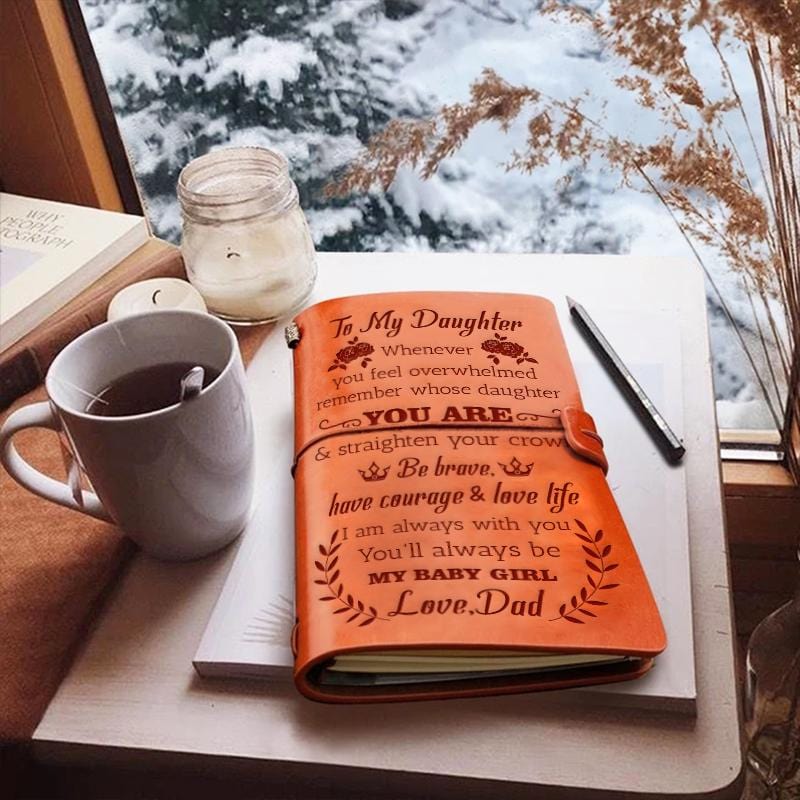 WHY
PEOPLE
PHOTOGRAPH
To My Daughter
Whenever
you feel overwhelmed
remember whose daughter
YOU ARE
& straighten your crow
Be brave,
have courage & love life
I am always with you
You'll always be
MY BABY GIRL
Love,Dad